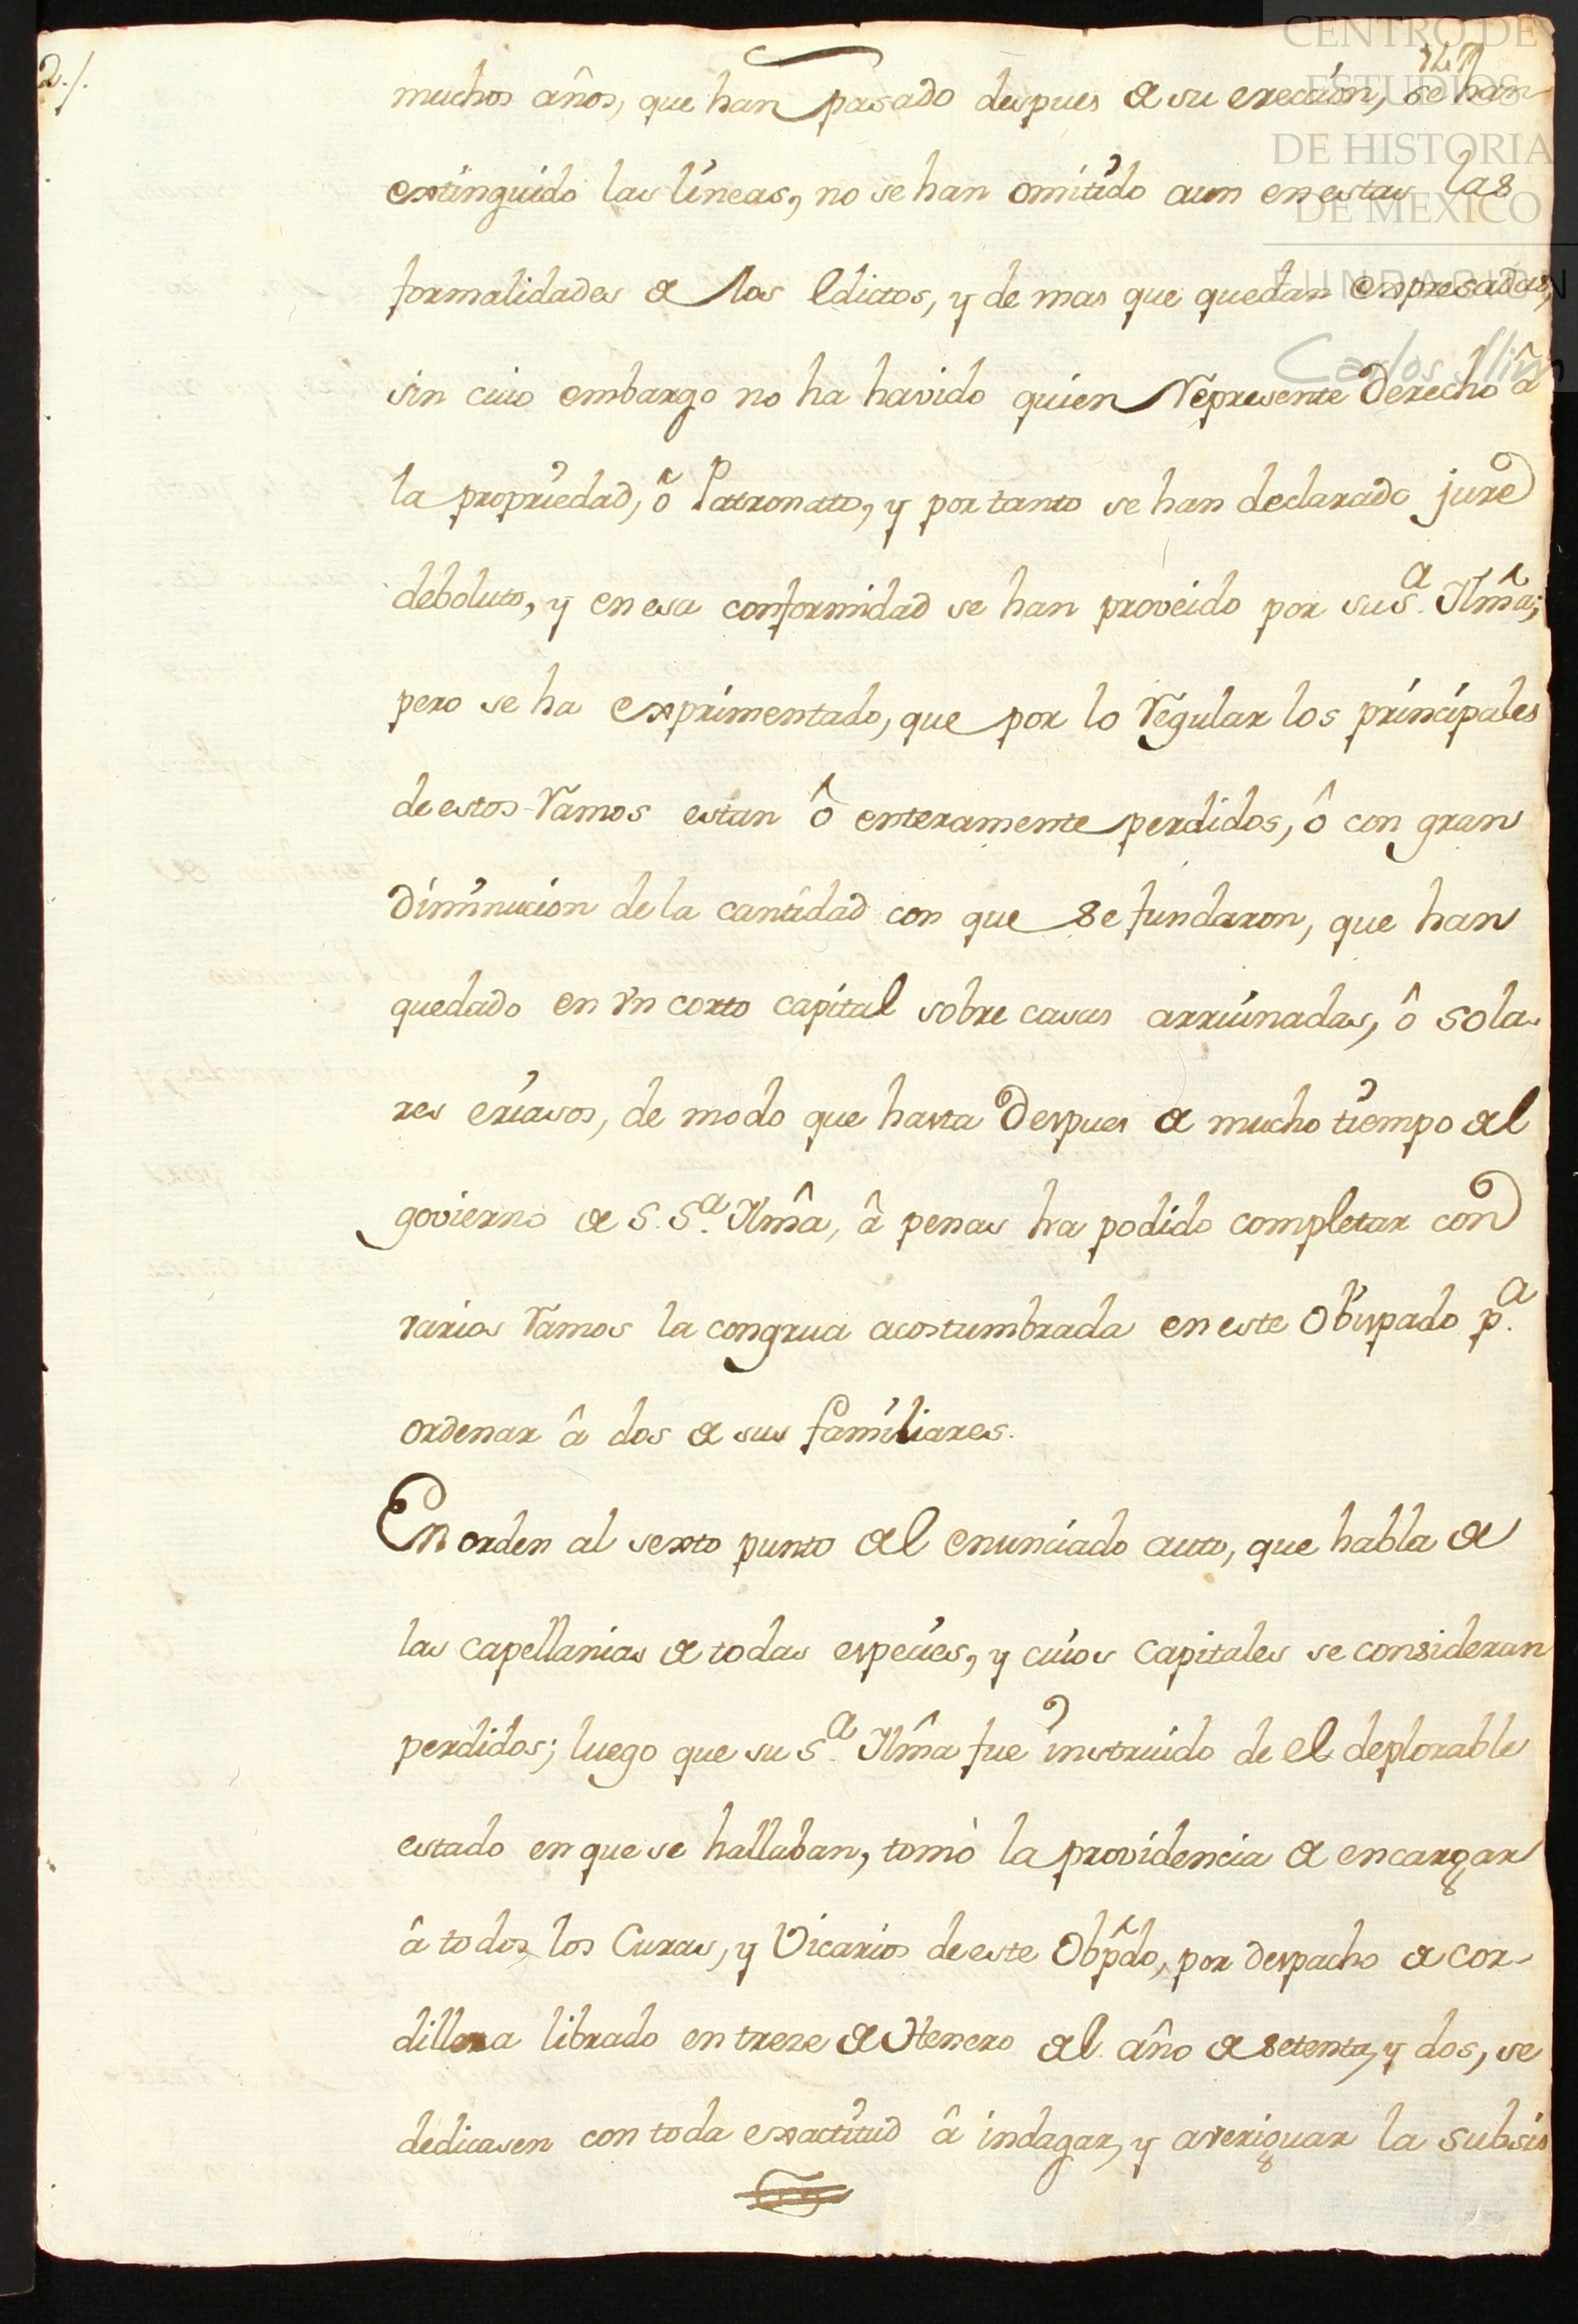 CENTRO DE
ESTUDIOS
DE HISTORIA
DE MEXICO
FUNDACION
Carlos Slim
2./.
muchos años, que han pasado despues de su erección, se han
extinguido las líneas, no se han omitido aun en estas las
formalidades de los Edictos, y de mas que quedan expresadas,
sin cuio embargo no ha havido quien represente derecho â
la propriedad, ô Patronatto, y por tanto se han declarado jure
deboluto, y en esa conformidad se han proveido por su Sª. Ilmâ;
pero se ha exprimentado, que por lo regular los principales
de estos Ramos estan ô enteramente perdidos, ô con gran
diminucion de la cantidad con que se fundaron, que han
quedado en vn corto capital sobre casas arruinadas, ô sola
res eriasos, de modo que hasta despues de mucho tiempo del
govierno de S. Sª. Ilmâ, â penas ha podido completar con
varios Ramos la congrua acostumbrada en este Obispado pª.
ordenar â dos de sus familiares.
En orden al sexto punto del enunciado auto, que habla de
las capellanias de todas especies, y cuios capitales se consideran
perdidos; luego que su Sª. Ilmâ fue instruido de el deplorable
estado en que se hallaban, tomò la providencia de encargar
â todos los Curas, y Vicarios de este Obp̂do, por despacho de cor-
dillera librado en treze de Henero del año de setenta, y dos, se
dedicasen con toda exactitud â indagar, y averiguar la subsis